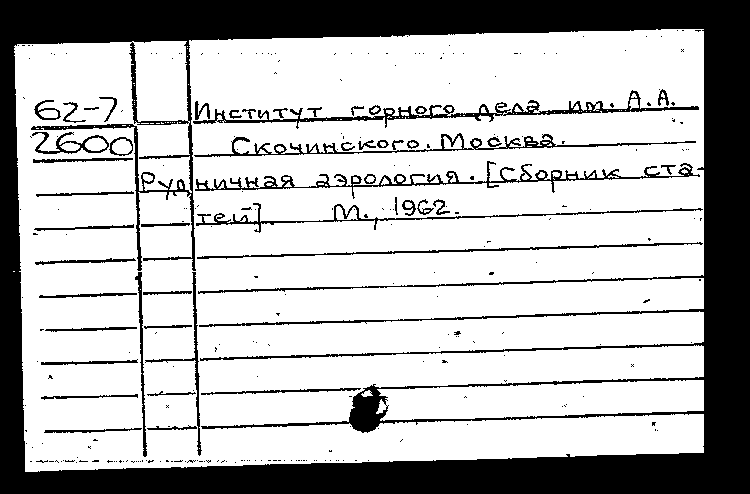 62-7 Институт горного дела им. А.А.
2600 Скочинского. Москва.
Рудничная аэрология. [Сборник ста-
тей] М., 1962.